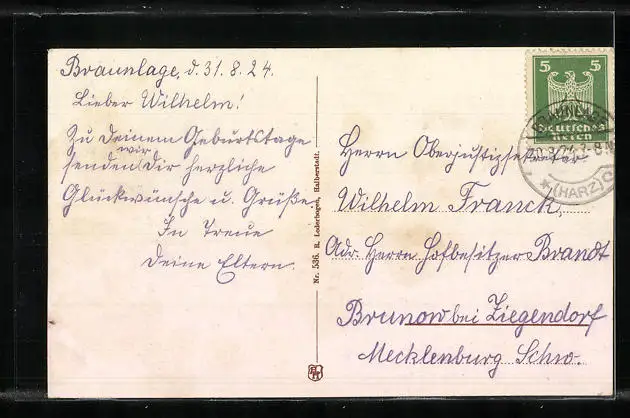 Braunlage, d. 31.8.24.
Lieber Wilhelm!
Zu Deinem Geburtstage
senden wir Dir herzliche
Glückwünsche u. Grüße
In Treue
Deine Eltern.
Nr. 536. R. Lederbogen, Halberstadt.
5 5
Deutsches
Reich
(HARZ)
Herrn Oberjustizsekretär
Wilhelm Franck,
Adr. Herrn Hofbesitzer Brandt
Brunow bei Ziegendorf
Mecklenburg Schw.